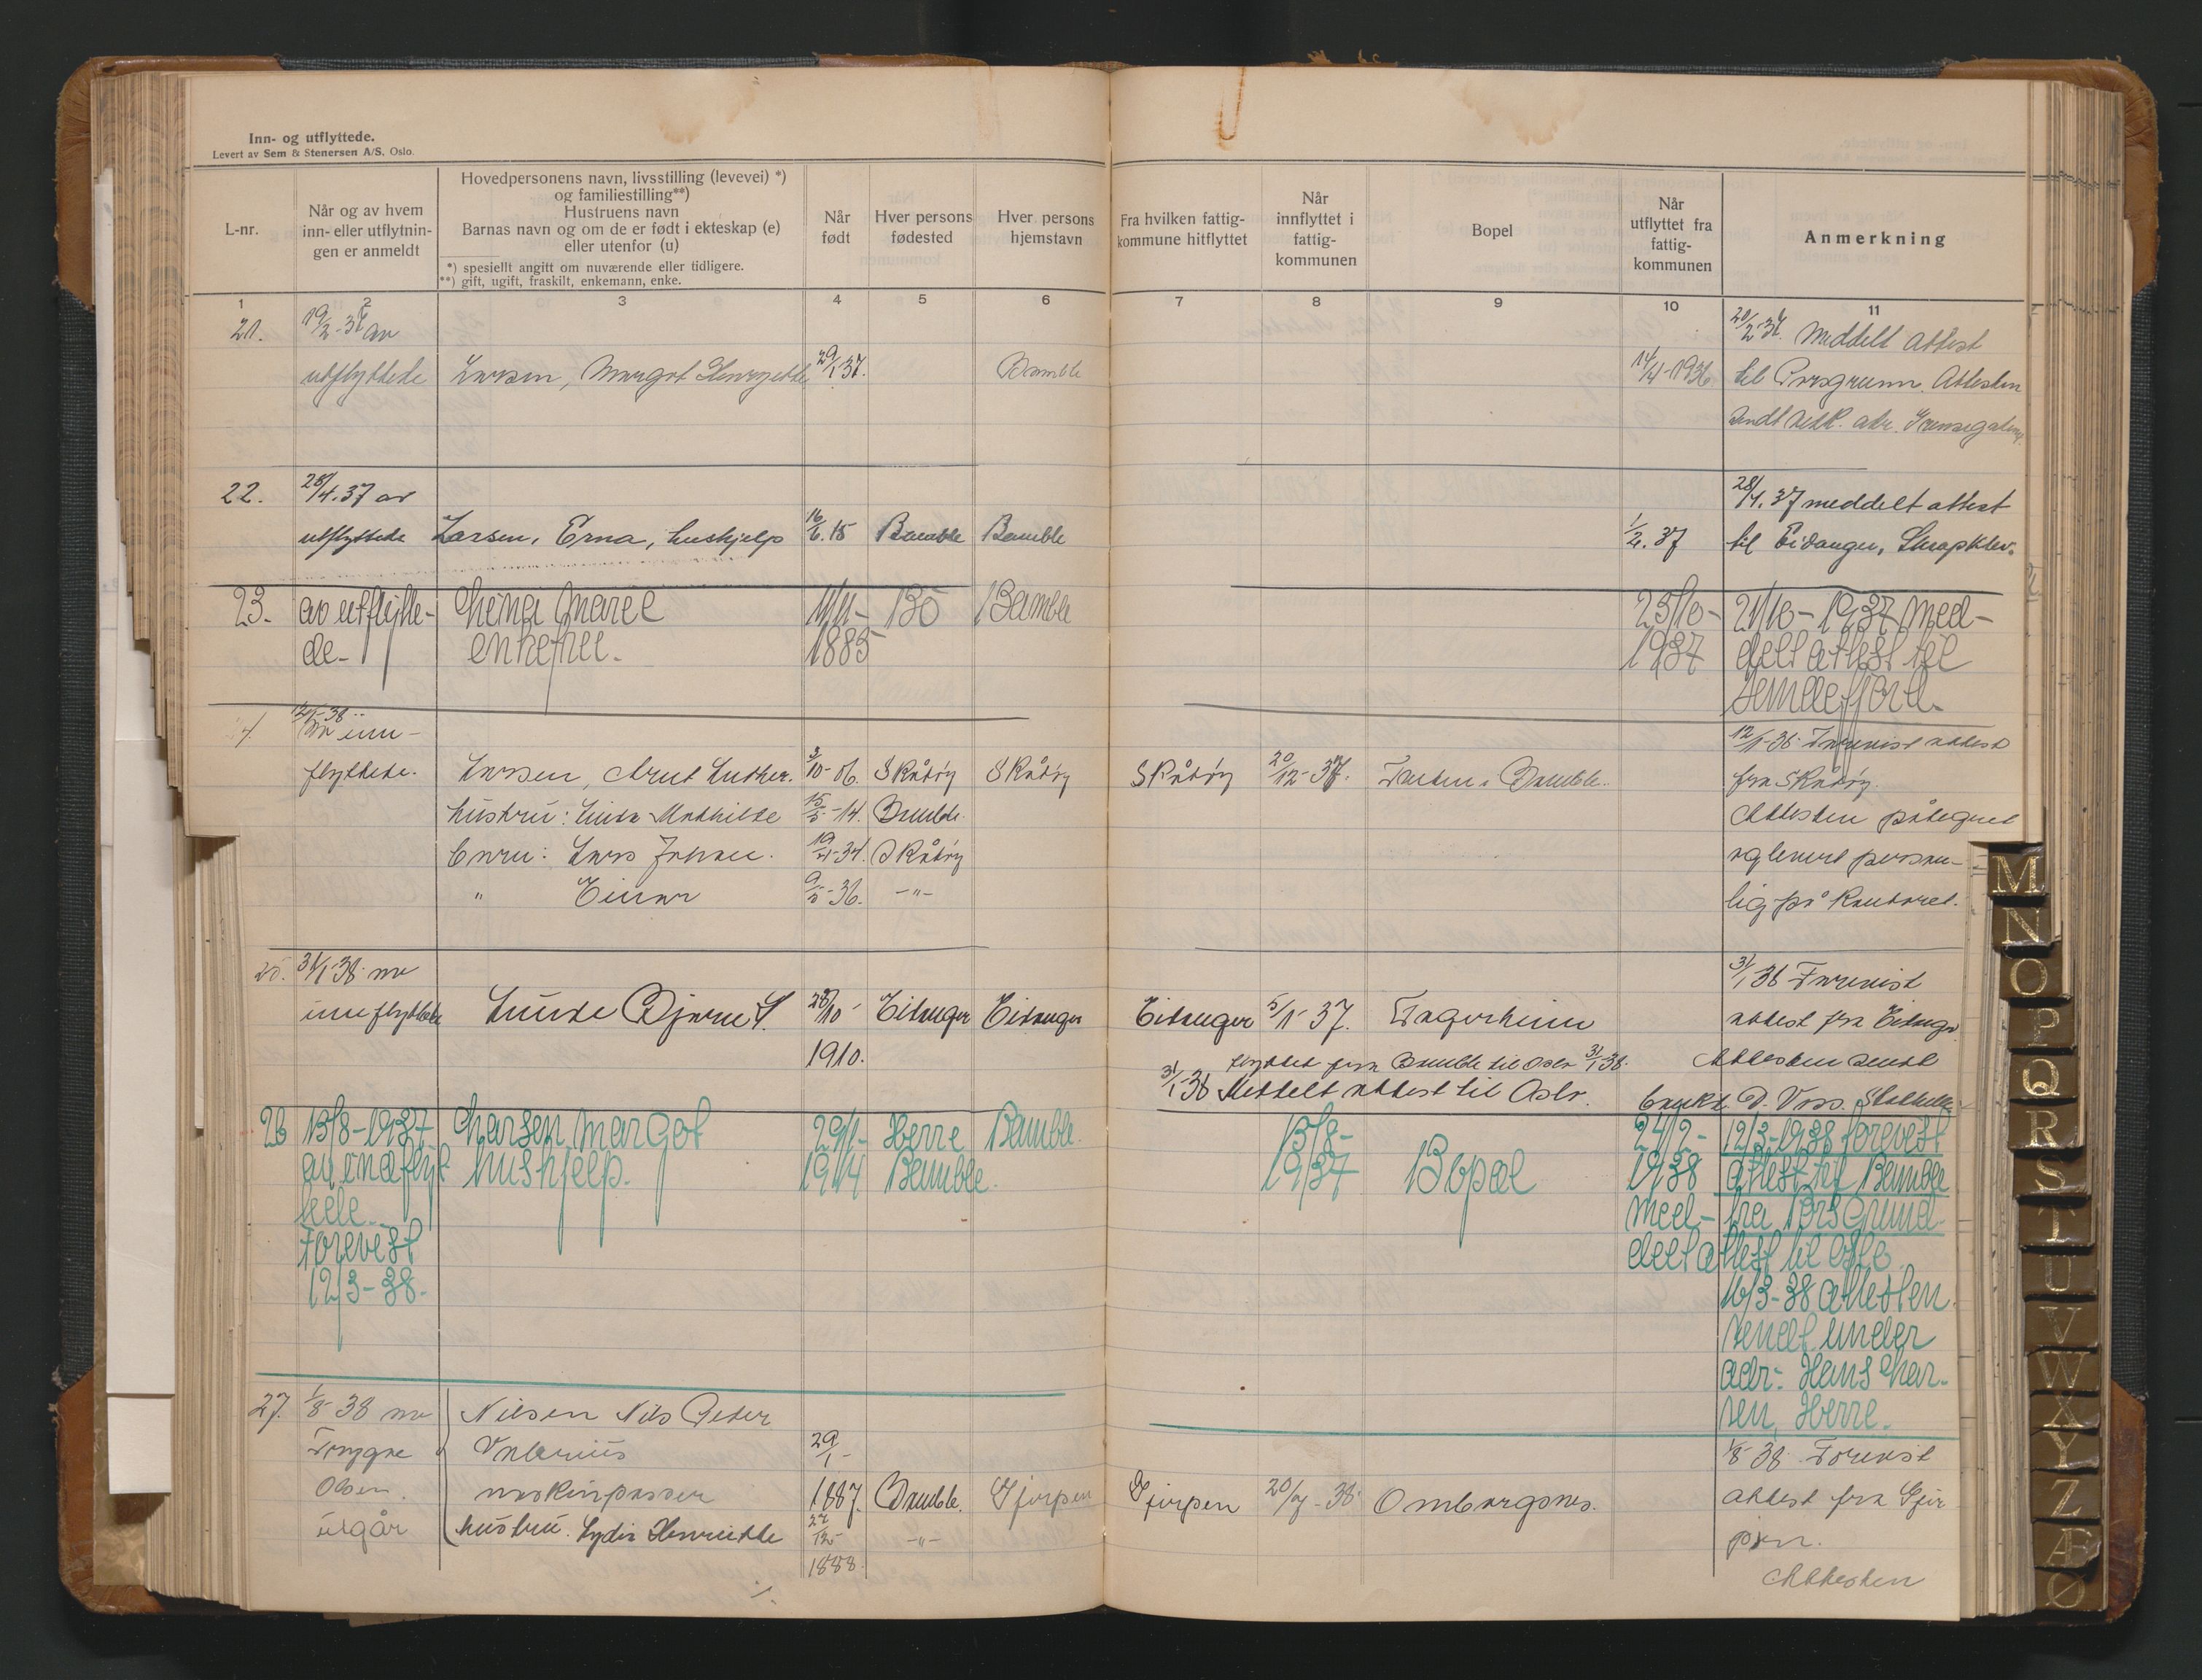 Inn- og utflyttede.
Levert av Sem & Stenersen A/S, Oslo.
L-nr.
Når og av hvem
inn- eller utflytnin-
gen er anmeldt
Hovedpersonens navn, livsstilling (levevei) *)
og familiestilling**)
Hustruens navn
Barnas navn og om de er født i ekteskap (e)
eller utenfor (u)
*) spesiellt angitt om nuværende eller tidligere.
**) gift, ugift, fraskilt, enkemann, enke.
Når
født
Hver persons
fødested
Hver persons
hjemstavn
Fra hvilken fattig-
kommune hitflyttet
Når
innflyttet i
fattig-
kommunen
Bopel
Når
utflyttet fra
fattig-
kommunen
Anmerkning
1 2 3 4 5 6 7 8 9 10 11
21. 19/2-37 av 20/2-37. Meddelt attest
utflyttede Larsen, Margot 29/1 37. Bamble 14/4-1936 til Porsgrunn. Attesten
sendt vedk. adr.
22. 28/4.37 av 28/4.37 meddelt attest
utflyttede Larsen, Erna, hushjelp 16/6.15 Bamble Bamble 1/2.37 til Eidanger,
23. av utflytte- 11/11- Bø Bamble 23/10- 21/10-1937 Med-
de- enkefru. 1885 1937 delt attest til
Sandefjord.
12/1-38
av inn- 12/1-38. Forevist attest
flyttede. Larsen, Arnt Luther. 3/10-06. Skåtøy Skåtøy Skåtøy 20/12-37. Bamble. fra Skåtøy.
hustru: Mathilde 15/5-14. Bamble. Attesten påtegnet
barn: Lars Johan. 19/4-34. Skåtøy og levert person-
" Einar 9/5-36. -"- lig på kontoret.
25. 31/1-38. av 31/1 38 Forevist
innflyttede Lunde Bjarne S. 28/10- Eidanger Eidanger Eidanger 5/1-37. Fagerheim attest fra Eidanger
1910. flyttet fra Bamble til Oslo 31/1-38. Attesten sendt
31/1-38 Meddelt attest til Oslo.
26 13/8-1937 Larsen Margot 29/1- Herre Bamble. 13/8- 24/2- 12/3-1938 forevest
av inaflyt hushjelp. 1914 Bamble. 1937 Bopæl 1938 attest til Bamble
tede. Med- fra Porsgrund.
Forevest delt attest til Oslo.
12/3-38. 16/3-38 attesten
sendt under
adr: Hans Lar-
sen, Herre.
27. 1/8-38 av Nilsen Nils Peder
Trygve Valerius 29/1- 1/8-38. Forevist
Olsen. maskinpasser 1887. Bamble. Gjerpen Gjerpen 20/7-38. Omborgsnes. attest fra Gjer
utgår hustru. Lydia Henriette 27/12- -"- pen.
1888. Attesten
M
N
O
P
Q
R
S
T
U
V
W
X
Y
Z
Æ
Ø